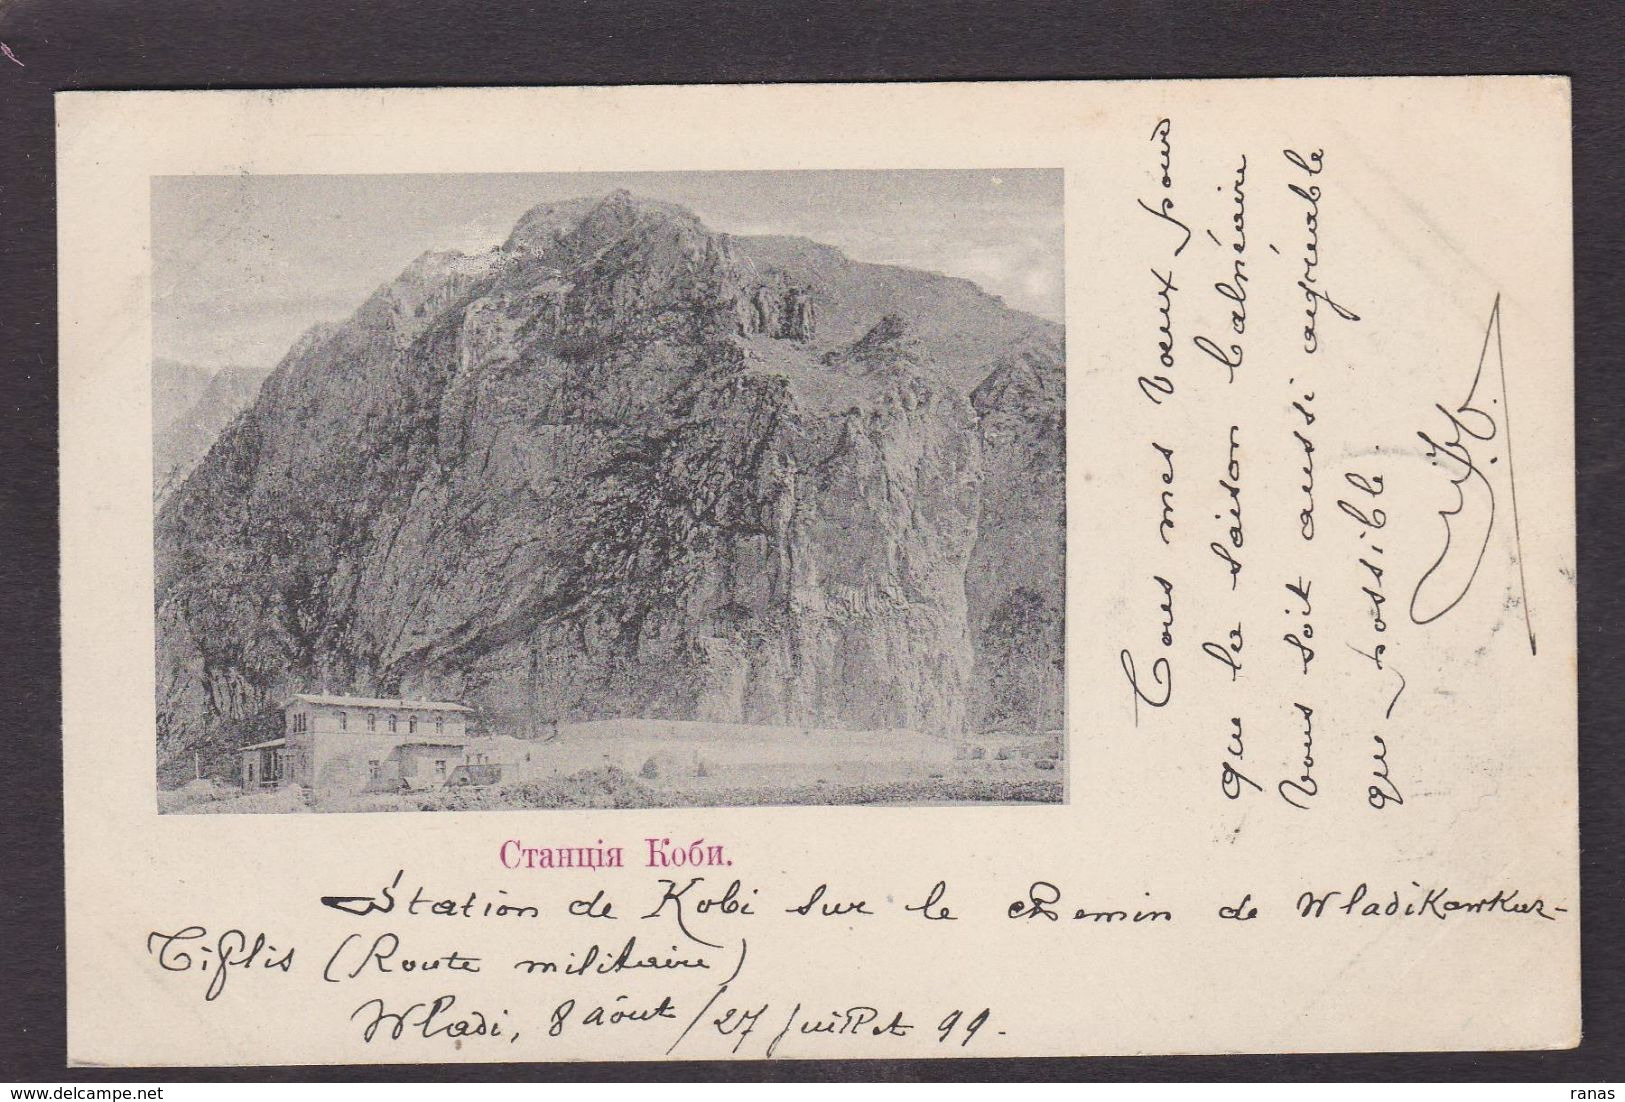 Станція Коби.
Station de Kobi sur le chemin de Wladikawkaz-
Tiflis (Route militaire)
Wladi, 8 août / 27 juillet 99.
Tous mes vœux pour
que le saison balnéaire
vous soit aussi agréable
que possible.
www.delcampe.net
ranas